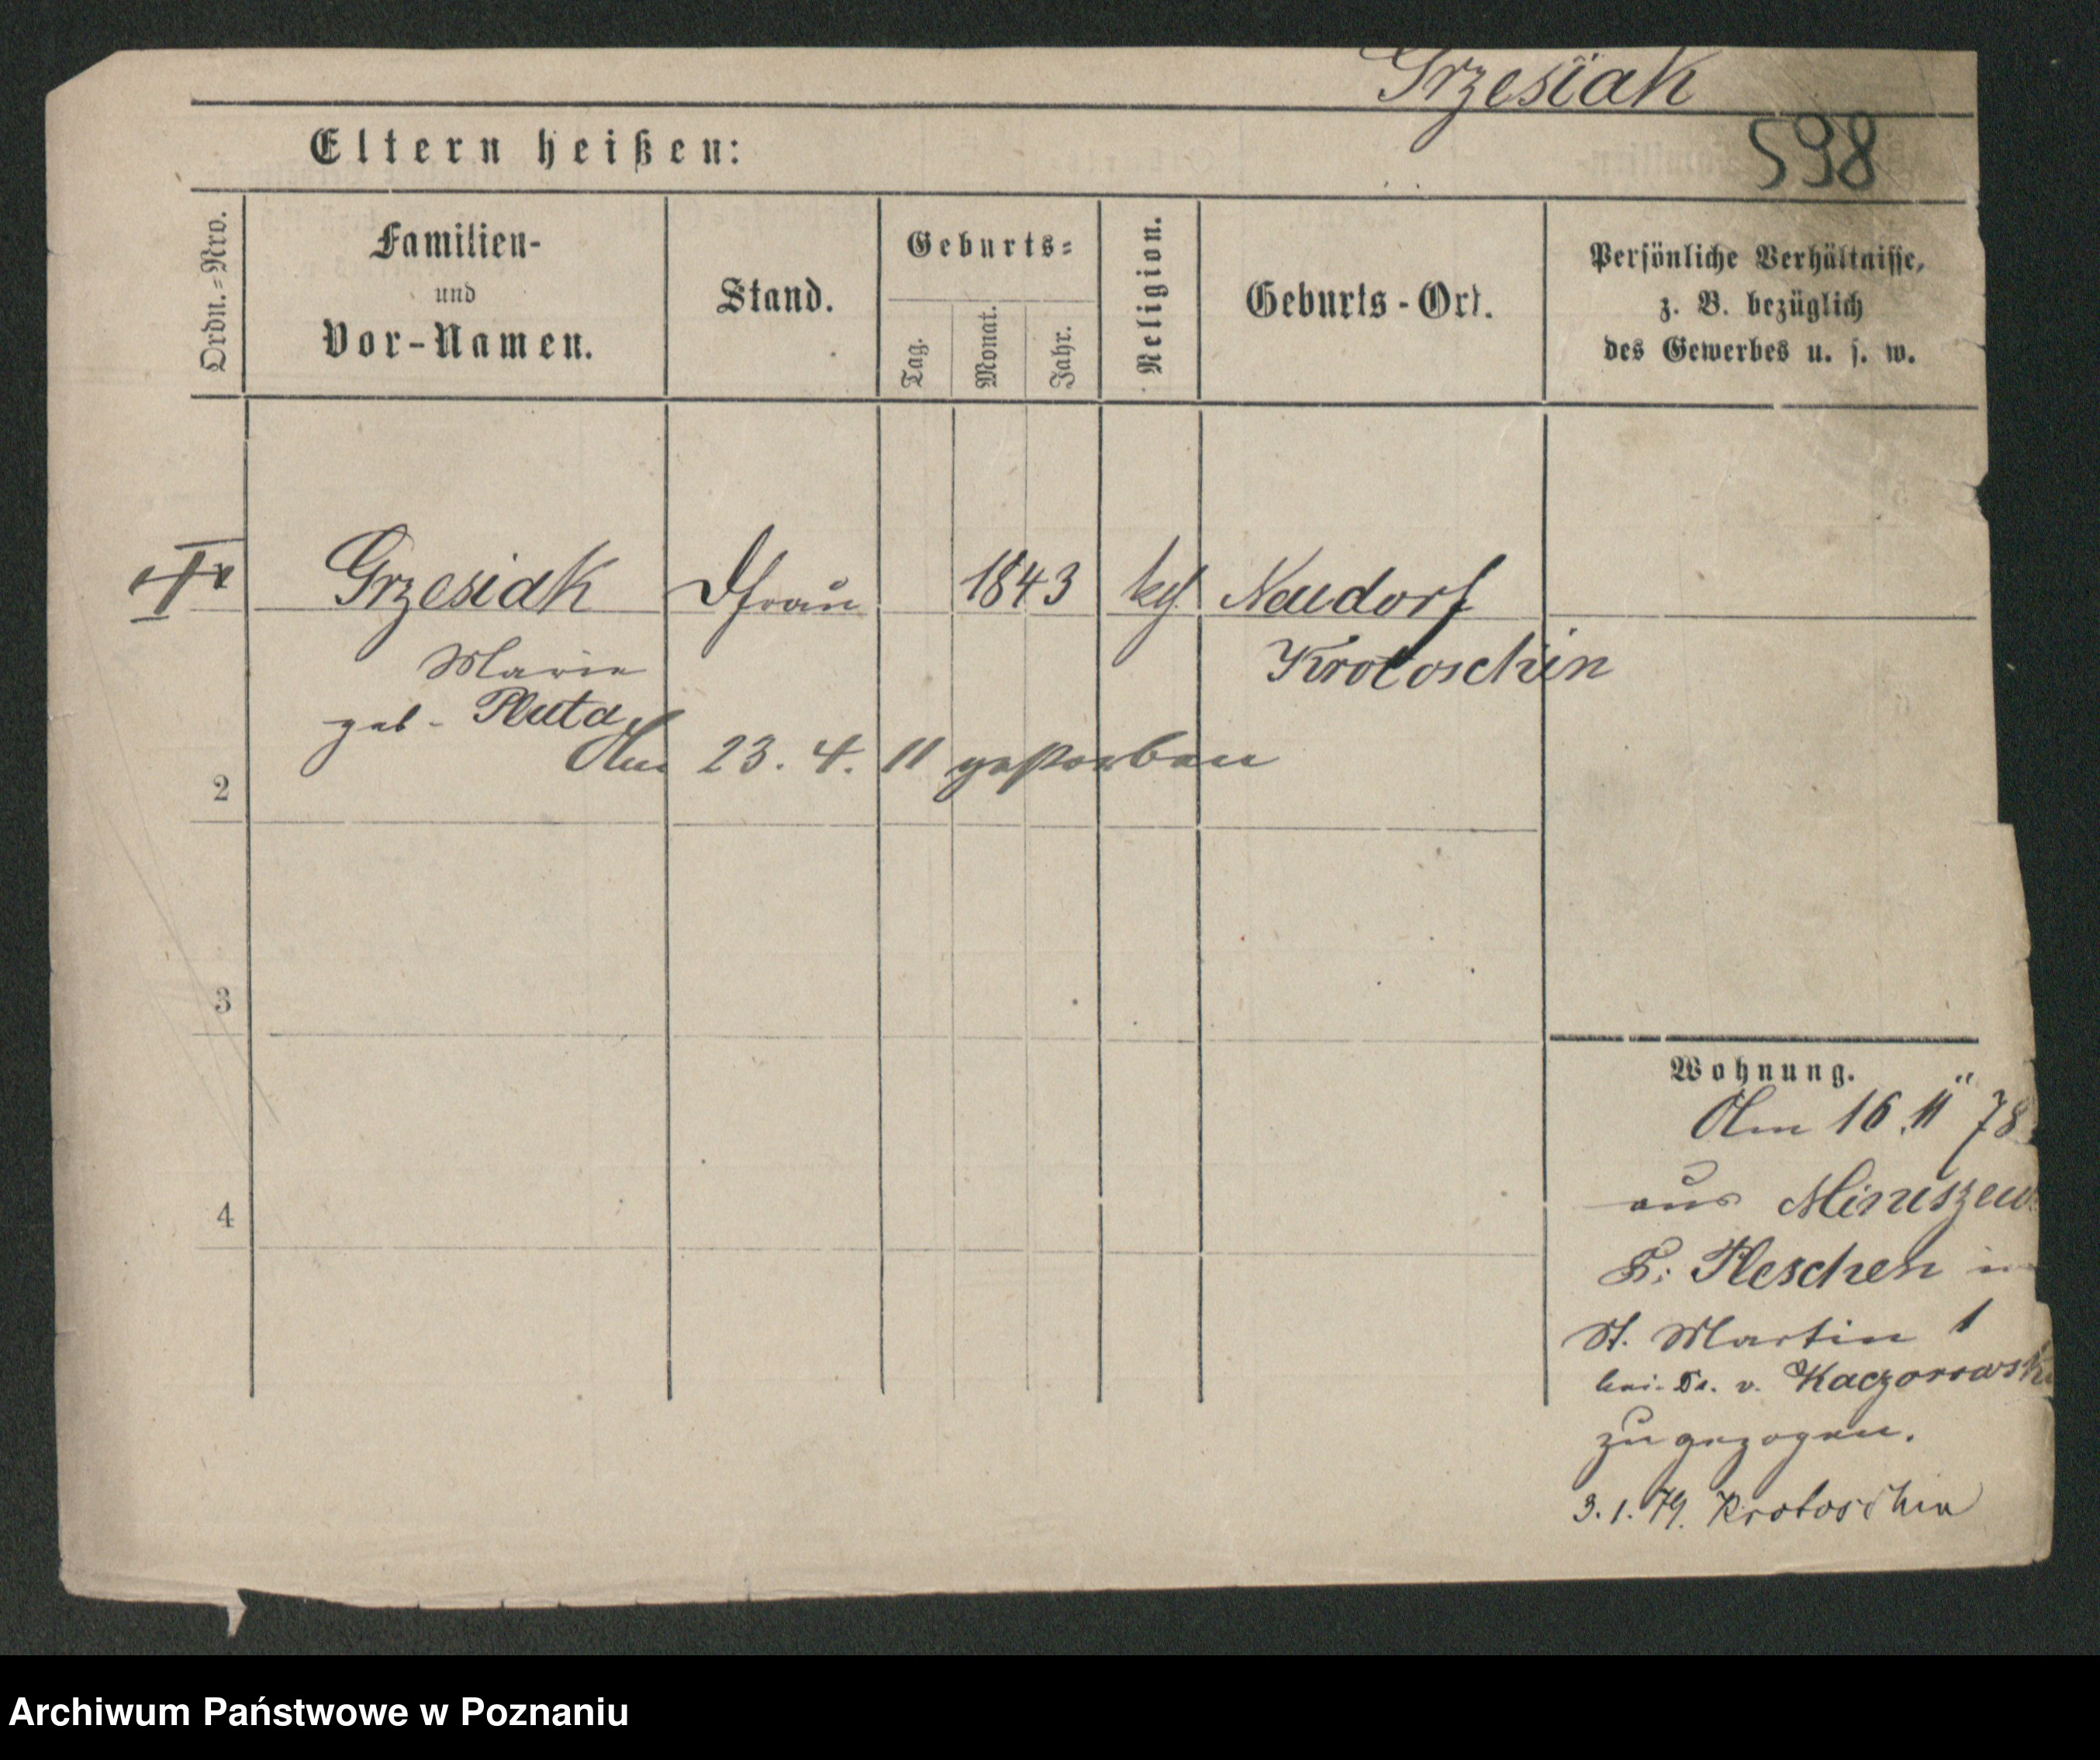 Grzesiak
598
Eltern heißen:
Ordn.=Nro.
Familien-
und
Vor-Namen.
Stand.
Geburts=
Tag.
Monat.
Jahr.
Religion.
Geburts-Ort.
Persönliche Verhältnisse,
z. B. bezüglich
des Gewerbes u. s. w.
Grzesiak 1843 Neudorf
Marie Krotoschin
geb. Pluta
Am 23. 4. 11 gestorben
2
3
4
Wohnung.
Am 16. 11 78
aus
Pleschen in
St. Martin 1
bei Dr. v. Kaczorowski
zugezogen.
3. 1. 79. Krotoschin
Archiwum Państwowe w Poznaniu